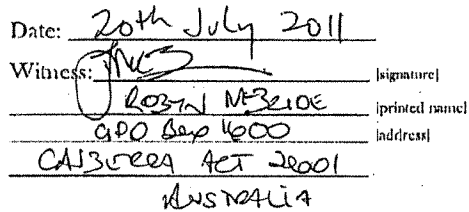 Date: 20th July 2011
Witness: [signature]
ROBYN McBRIDE [printed name]
GPO Box 1600 [address]
CANBERRA ACT 2601
AUSTRALIA